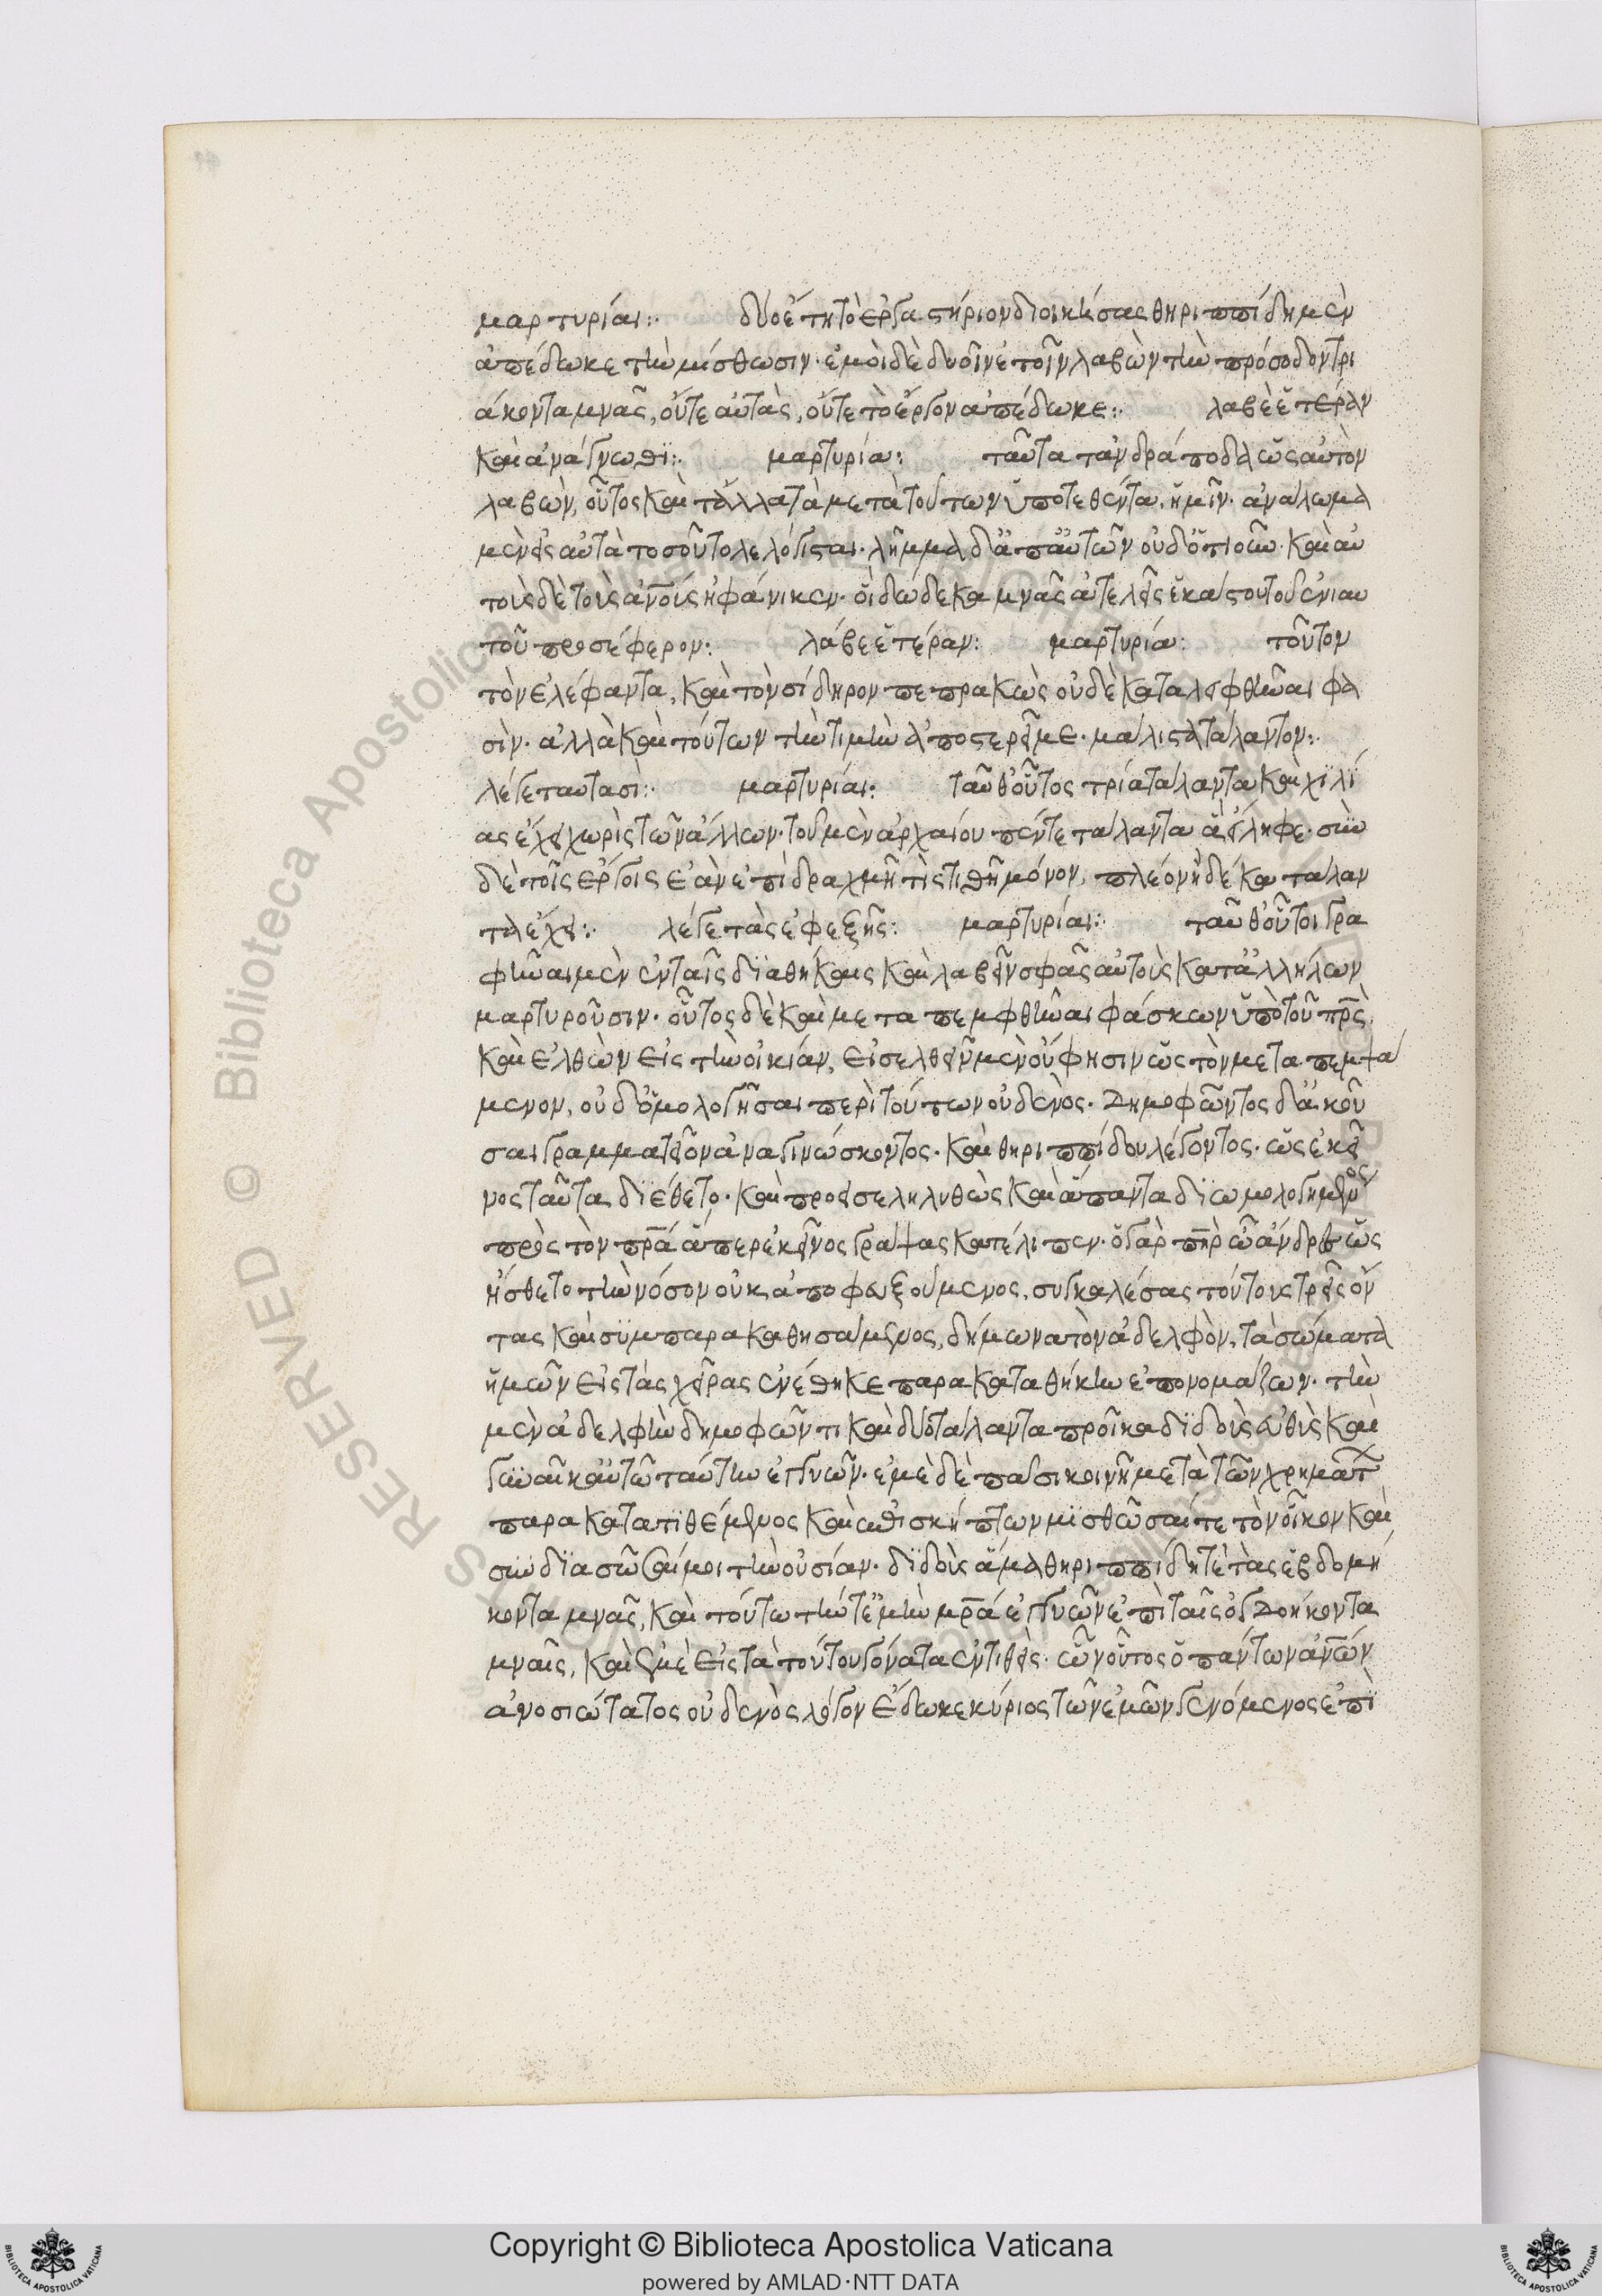 μαρτυρίαι:· δύο ἔτη τὸ ἐργαστήριον διοικήσας θηριππίδη μὲν
ἀπέδωκε τὴν μίσθωσιν· ἐμοὶ δὲ δυοῖν ἐτοῖν λαβὼν τὴν πρόσοδον τρι
άκοντα μνᾶς, οὔτε αὐτὰς, οὔτε τὸ ἔργον ἀπέδωκε:· λαβὲ ἑτέραν
καὶ ἀνάγνωθϊ:· μαρτυρία: ταῦτα τἀνδράποδα ὡς αὐτὸν
λαβὼν, οὗτος καὶ τἄλλα τὰ μετὰ τούτων ὑποτεθέντα, ἡμῖν· ἀνάλωμα
μὲν εἰς αὐτὰ τοσοῦτο λελόγισται· λῆμμα δ' ἀπ' αὐτῶν οὐδ' ὁτιοῦν· καὶ αὐ
τοὺς δὲ τοὺς ἀνοὺς ἠφάνικεν· οἳ δώδεκα μνᾶς ἀτελεῖς ἑκάστου τοῦ ἐνιαυ
τοῦ προσέφερον: λάβε ἑτέραν: μαρτυρία: τοῦτον
τὸν ἐλέφαντα, καὶ τὸν σίδηρον πεπρακὼς οὐδὲ καταλειφθῆναι φα
σὶν· ἀλλὰ καὶ τούτων τὴν τιμὴν ἀποστερεῖ με· μάλιστα τάλαντον:·
λέγε ταυτασὶ:· μαρτυρίαι: ταῦθ' οὗτος τρία τάλαντα καὶ χϊλί
ας ἔχει χωρὶς τῶν ἄλλων· τοῦ μὲν ἀρχαίου πέντε τάλαντα ἃ εἴληφε· σὺν
δὲ τοῖς ἔργοις ἐὰν ἐπὶ δραχμῆ τὶς τιθῆ μόνον, πλέον ἢ δέκα τάλαν
τα ἔχει:· λέγε τὰς ἐφεξῆς: μαρτυρίαι:· ταῦθ' οὗτοι γρα
φῆναι μὲν ἐν ταῖς διαθήκαις καὶ λαβεῖν σφᾶς αὐτοὺς κατ' ἀλλήλων
μαρτυροῦσιν· οὗτος δὲ καὶ μεταπεμφθῆναι φάσκων ὑπὸ τοῦ πρς.
καὶ ἐλθὼν εἰς τὴν οἰκίαν, εἰσελθεῖν μὲν οὔ φησιν ὡς τὸν μεταπεμψά
μενον, οὐδ' ὁμολογῆσαι περὶ τούτων οὐδενὸς· Δημοφῶντος δ' ἀκοῦ
σαι γραμματεῖον ἀναγινώσκοντος· καὶ θηριππίδου λέγοντος· ὡς ἐκεῖ
νος ταῦτα διέθετο· καὶ προεισεληλυθὼς καὶ ἅπαντα διωμολογημένος
πρὸς τὸν πρα ἅπερ ἐκεῖνος γράψας κατέλιπεν· ὁ γὰρ πηρ ὦ ἄνδρες ὡς
ᾔσθετο τὴν νόσον οὐκ ἀποφευξούμενος, συγκαλέσας τούτους τρεῖς ὄν
τας καὶ συμπαρακαθησάμενος, δήμωνα τὸν ἀδελφὸν, τὰ σώματα
ἡμῶν εἰς τὰς χεῖρας ἐνέθηκε παρακαταθήκην ἐπονομάζων· τὴν
μὲν ἀδελφὴν δημοφῶντι καὶ δύο τάλαντα προῖκα διδοὺς εὐθὺς καὶ
γυναῖκ' αὐτῶ ταύτην ἐγγυῶν· ἐμὲ δὲ πᾶσι κοινῆ μετὰ τῶν χρημάτ
παρακατατιθέμενος καὶ ἐπισκήπτων μισθῶσαί τε τὸν οἶκον καὶ
συνδιασῶσαί μοι τὴν οὐσίαν· διδοὺς ἅμα θηριππίδη τέ τὰς ἑβδομή
κοντα μνᾶς, καὶ τούτω τήν τ' ἐμὴν μρα ἐγγυῶν ἐπὶ ταῖς ὀγδοήκοντα
μναῖς, καὶ ἐμὲ εἰς τὰ τούτου γόνατα ἐντιθεὶς· ὧν οὗτος ὁ πάντων ἀνων
ἀνοσιώτατος οὐδενὸς λόγον ἔδωκε κύριος τῶν ἐμῶν γενόμενος ἐπϊ
Copyright © Biblioteca Apostolica Vaticana
powered by AMLAD·NTT DATA